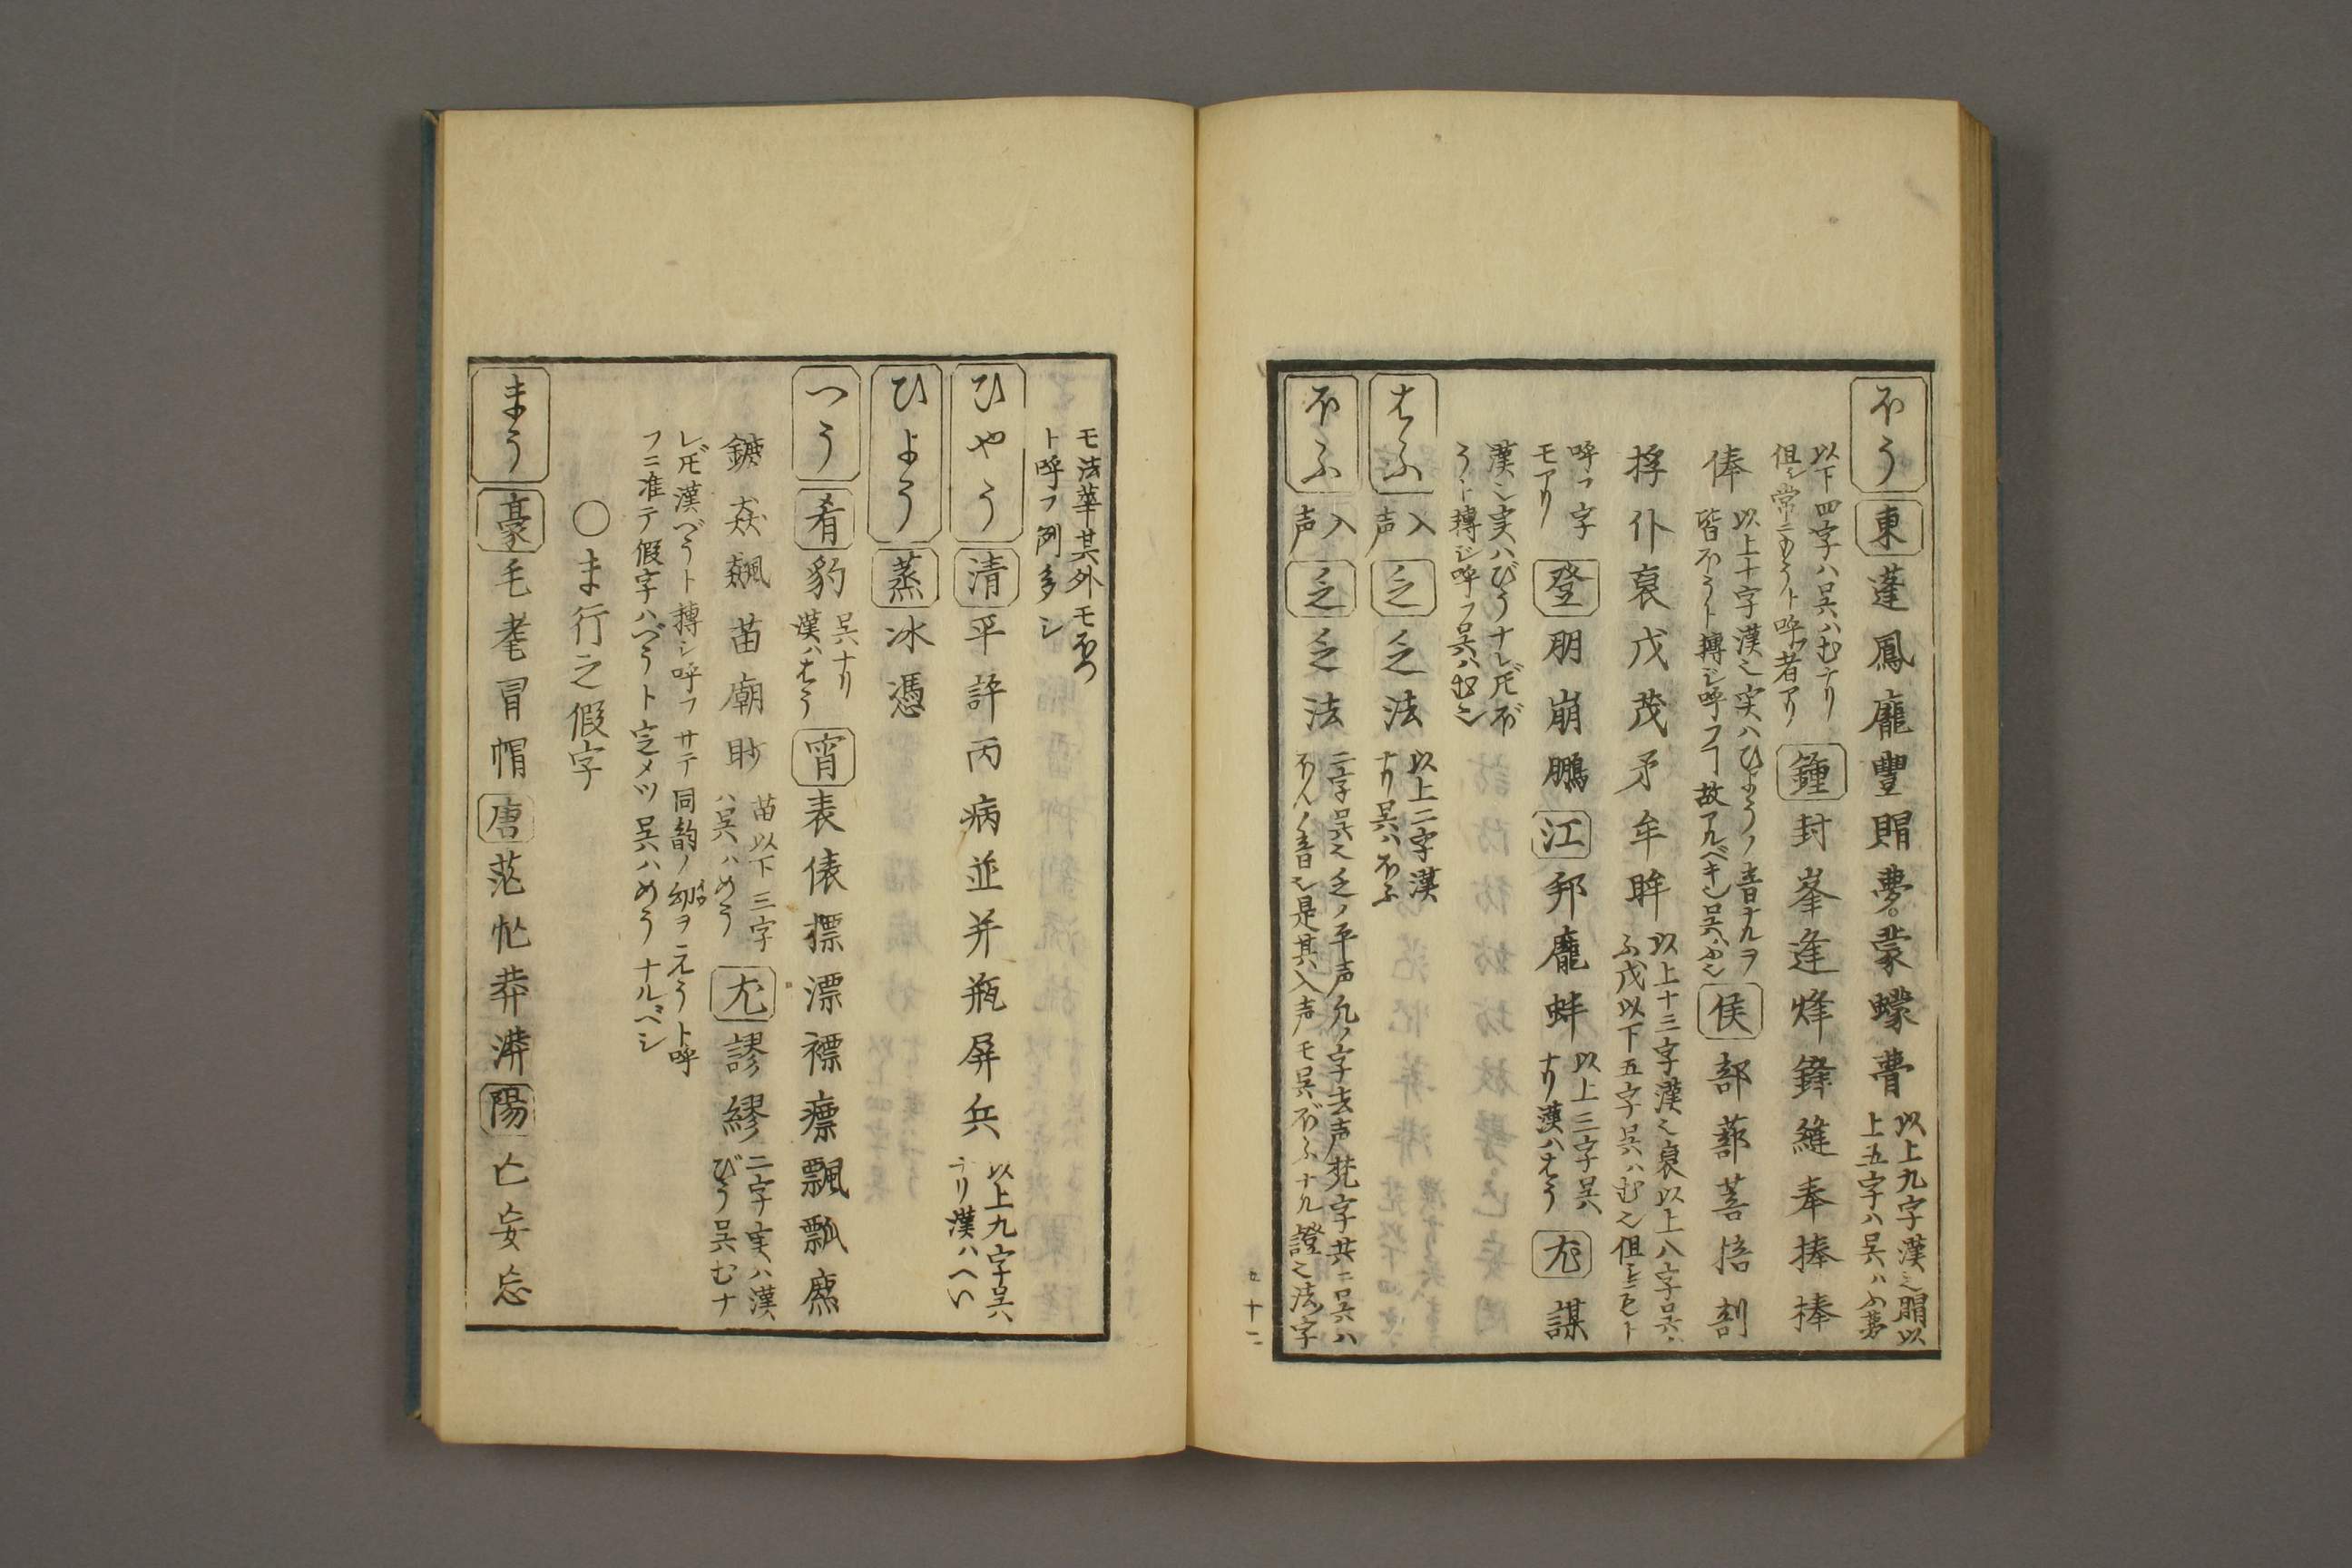 ほう 東 蓬鳳龐豐賵夢蒙蠓瞢 以上九字漢也賵以
上五字ハ呉ハふ夢
以下四字ハ呉ハむナリ
但シ常ニむうト呼フ者アリ 鍾 封峯逢烽鋒縫奉捧棒
俸 以上十字漢也実ハひようノ音ナルヲ
皆ほうト轉シ呼フヿ故アルベキ也呉ハふ也 侯 部蔀菩掊剖
掊仆裒戊茂矛牟眸 以上十三字漢也裒以上八字呉ハ
ふ戊以下五字呉ハむ也但シもト
呼フ字
モアリ 登 朋崩鵬 江 邦龐蚌 以上三字呉
ナリ漢ハはう 尤 謀
漢也実ハびうナレドモぼ
うト轉シ呼フ呉ハむ也
はふ 入声 乏 乏法 以上二字漢
ナリ呉ハほふ
ほふ 入声 乏 乏法 二字呉也乏ノ平声凡ノ字去声梵字共ニ呉ハ
ほんノ音也是其入声モ呉ぼふナル證也法字
モ法華其外モほつ
ト呼フ例多シ
ひやう 清 平評丙病並并瓶屏兵 以上九字呉
ナリ漢ハへい
ひよう 蒸 冰憑
へう 肴 豹 呉ナリ
漢ハはう 宵 表俵摽漂褾瘭飄瓢麃
鑣猋飆苗廟眇 苗以下三字
ハ呉ハめう 尤 謬繆 二字実ハ漢
びう呉むナ
レドモ漢べうト轉シ呼フサテ同韵ノ幼ヲえうト呼
フニ准テ假字ハべうト定メツ呉ハめうナルベシ
○ま行之假字
まう 豪 毛耄冒帽 唐 茫忙莽漭 陽 亡妄忘
五十二